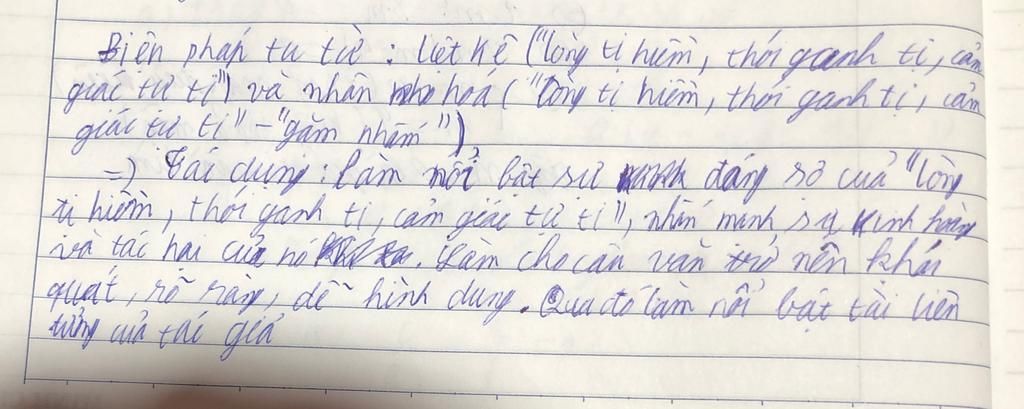 Biện pháp tu từ : liệt kê ("lòng tị hiềm, thói ganh tị, cảm
giác tự ti") và nhân hoá ( "lòng tị hiềm, thói ganh tị, cảm
giác tự ti" - "gặm nhấm")
=) Tác dụng : Làm nổi bật sự đáng sợ của "lòng
tị hiềm, thói ganh tị, cảm giác tự ti", nhấn mạnh sự kinh hoàng
và tác hại của nó. Làm cho câu văn trở nên khái
quát, rõ ràng, dễ hình dung. Qua đó làm nổi bật tài liên
tưởng của tác giả